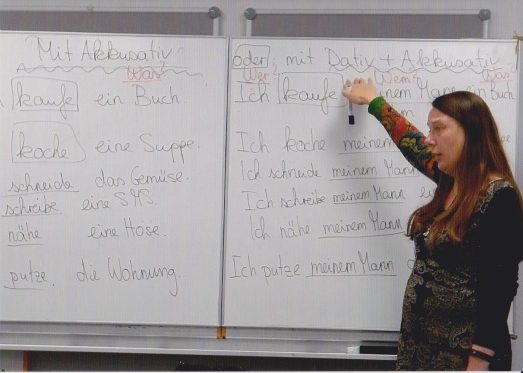 Mit Akkusativ
Was?
kaufe ein Buch
koche eine Suppe.
schneide das Gemüse.
schreibe eine SMS.
nähe eine Hose.
putze die Wohnung.
oder, mit Dativ + Akkusativ
Wer? Wem? Was?
Ich kaufe meinem Mann ein Buch
Ich koche meinem
Ich schneide meinem Mann
Ich schreibe meinem Mann
Ich nähe meinem Mann
Ich putze meinem Mann